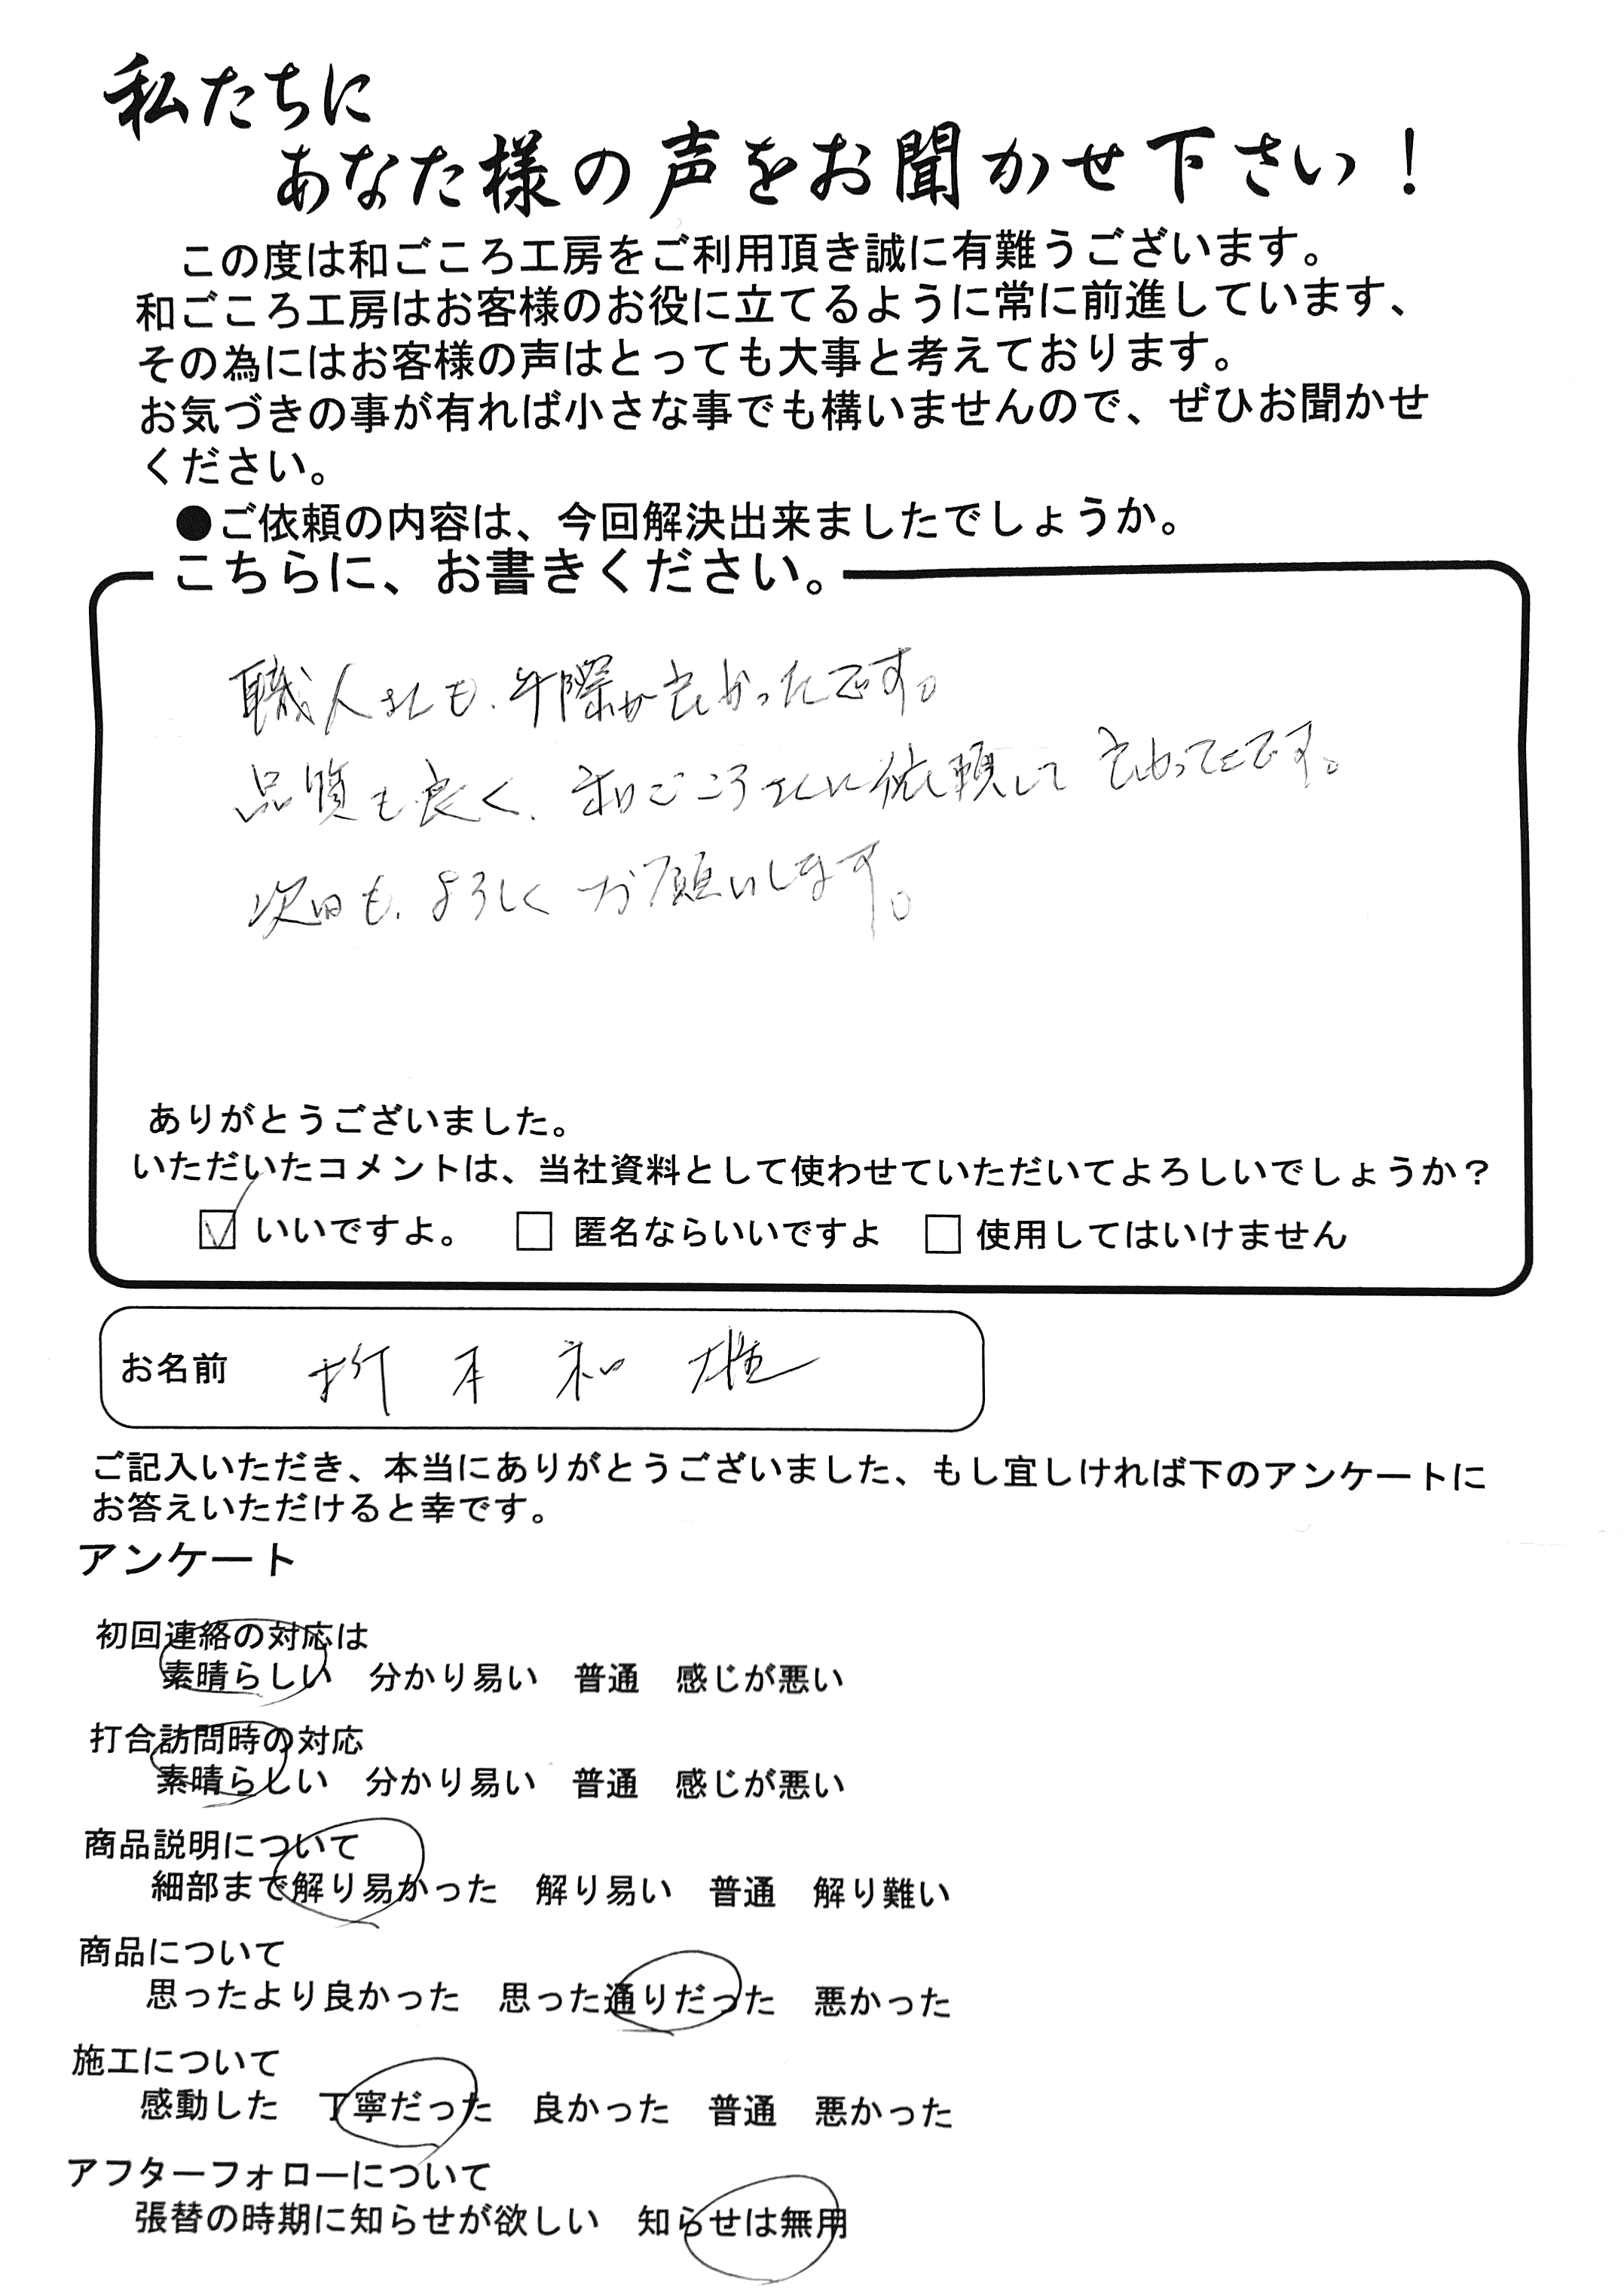 私たちに
あなた様の声をお聞かせ下さい！
この度は和ごころ工房をご利用頂き誠に有難うございます。
和ごころ工房はお客様のお役に立てるように常に前進しています、
その為にはお客様の声はとっても大事と考えております。
お気づきの事が有れば小さな事でも構いませんので、ぜひお聞かせ
ください。
●ご依頼の内容は、今回解決出来ましたでしょうか。
こちらに、お書きください。
職人さんも、手際が良かったです。
品質も良く、和ごころさんに依頼して良かったです。
次回も、よろしくお願いします。
ありがとうございました。
いただいたコメントは、当社資料として使わせていただいてよろしいでしょうか？
いいですよ。 匿名ならいいですよ 使用してはいけません
お名前 折本和雄
ご記入いただき、本当にありがとうございました、もし宜しければ下のアンケートに
お答えいただけると幸です。
アンケート
初回連絡の対応は
素晴らしい 分かり易い 普通 感じが悪い
打合訪問時の対応
素晴らしい 分かり易い 普通 感じが悪い
商品説明について
細部まで解り易かった 解り易い 普通 解り難い
商品について
思ったより良かった 思った通りだった 悪かった
施工について
感動した 丁寧だった 良かった 普通 悪かった
アフターフォローについて
張替の時期に知らせが欲しい 知らせは無用